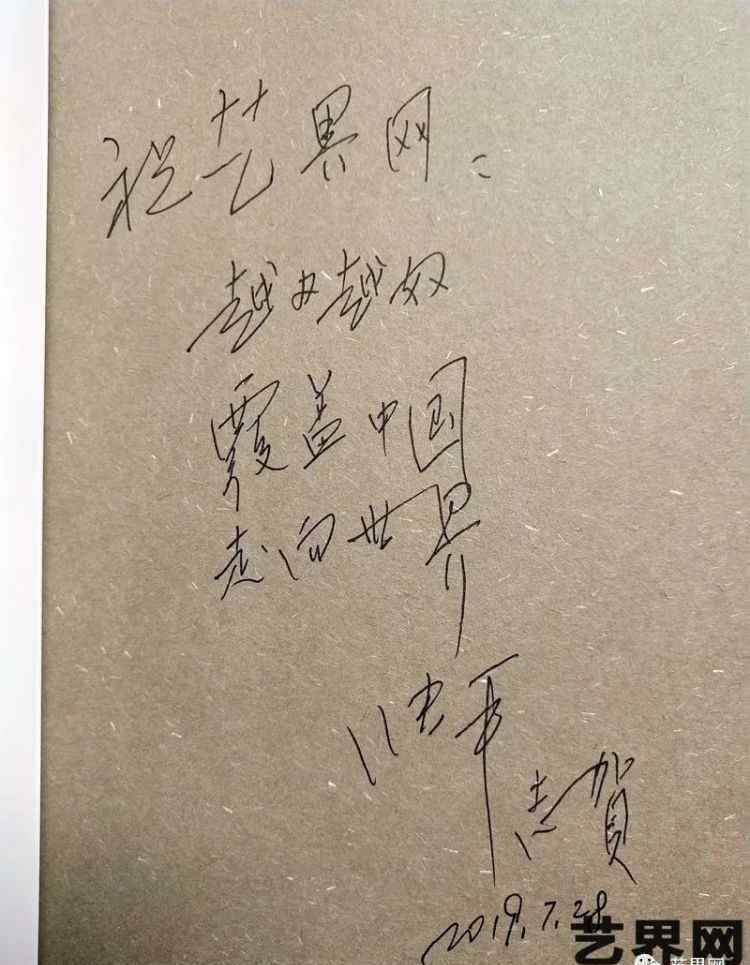 祝艺界网:
越办越好
覆盖中国
走向世界
志賀
2019.7.28
艺界网
艺界网